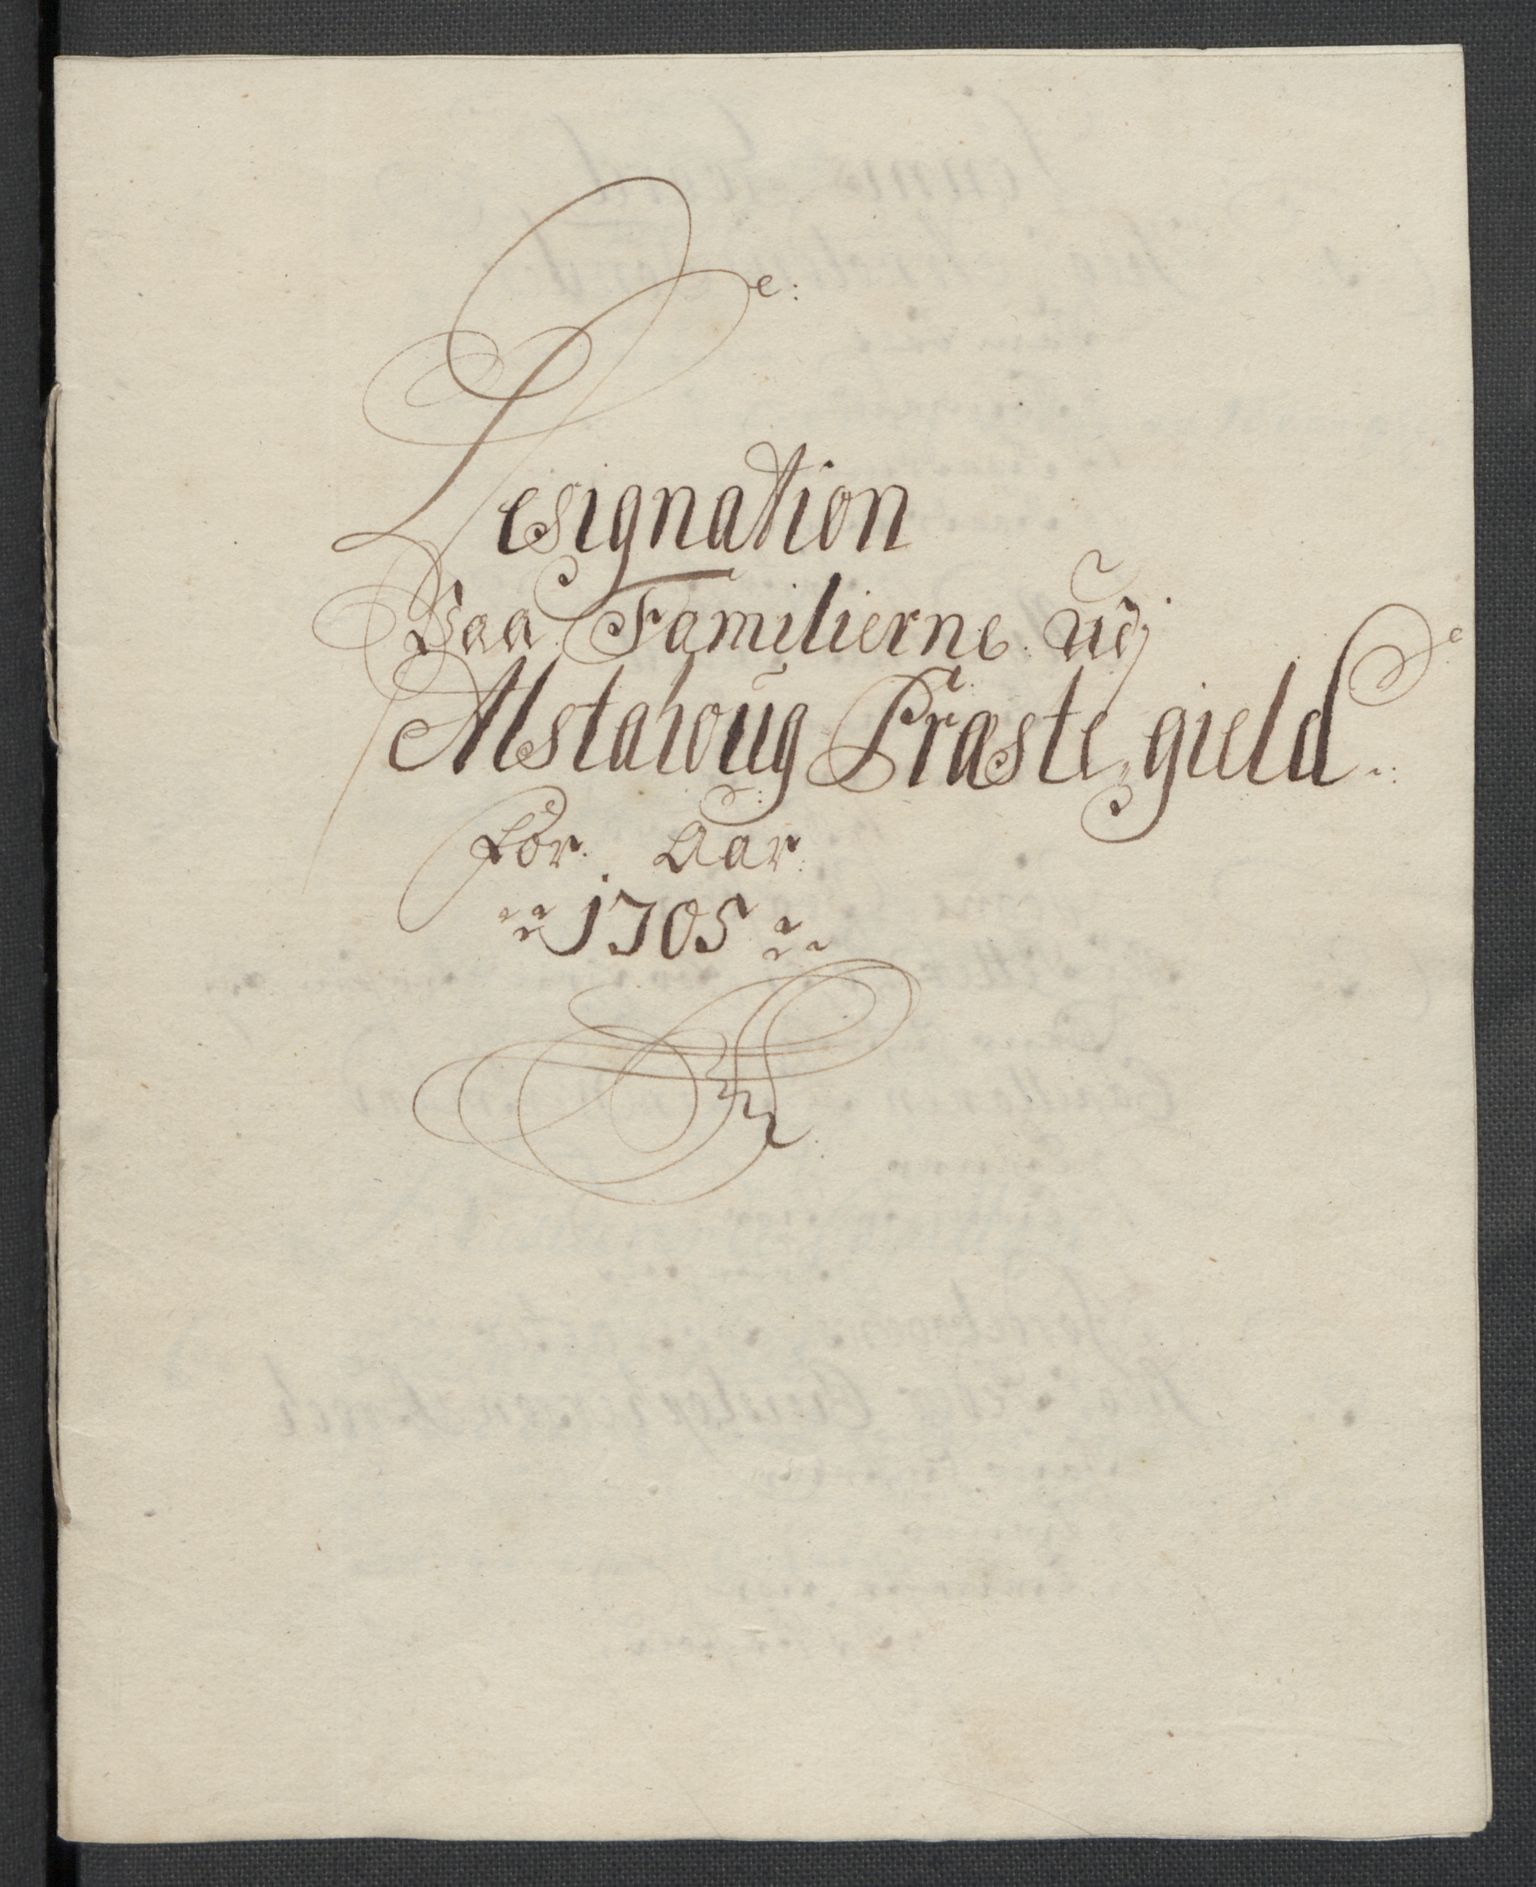 Designation
Paa Familierne udj
Alstahoug Præste gield
For Aar
1705